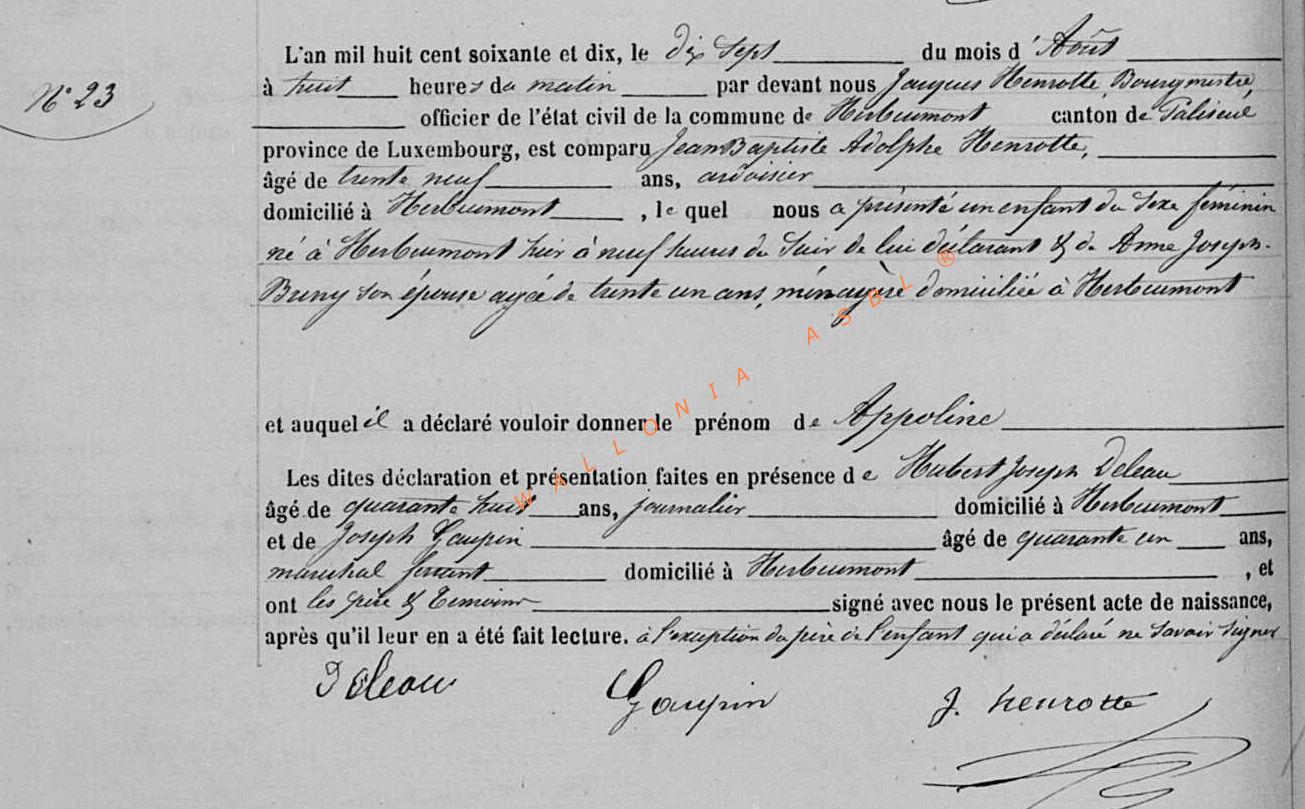 L'an mil huit cent soixante et dix, le dix sept du mois d'Août
N° 23
à huit heures du matin par devant nous Jacques Henrotte, Bourgmestre,
officier de l'état civil de la commune de Herbeumont canton de Paliseul
province de Luxembourg, est comparu Jean Baptiste Adolphe Henrotte,
âgé de trente neuf ans, ardoisier
domicilié à Herbeumont, le quel nous a présenté un enfant du sexe féminin
né à Herbeumont hier à neuf heures du soir de lui déclarant & de Anne Joseph-
son épouse agée de trente un ans, ménagère domiciliée à Herbeumont
et auquel il a déclaré vouloir donner le prénom de Appoline
Les dites déclaration et présentation faites en présence de Hubert Joseph Deleau
âgé de quarante huit ans, journalier domicilié à Herbeumont
et de Joseph Goupin âgé de quarante un ans,
maréchal ferrant domicilié à Herbeumont, et
ont les père & temoins signé avec nous le présent acte de naissance,
après qu'il leur en a été fait lecture. à l'exception du père de l'enfant qui a déclaré ne savoir signer
Deleau Goupin J. Henrotte
WALLONIA ASBL ®